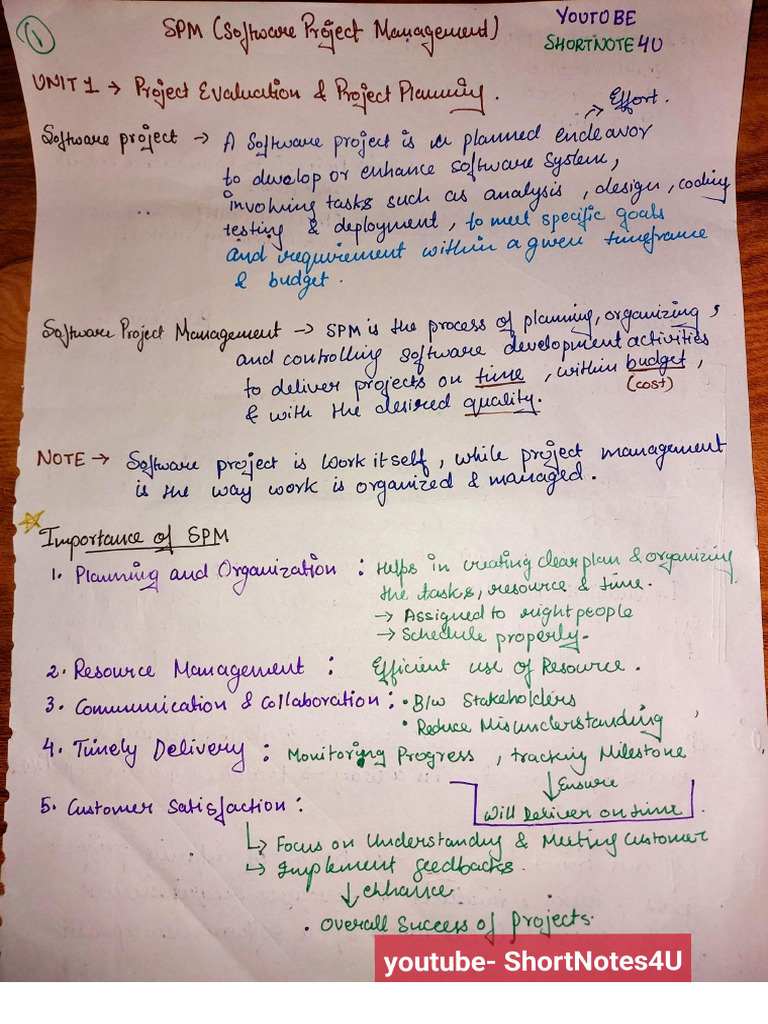 1
SPM (Software Project Management)
YOUTOBE
SHORTNOTE4U
UNIT 1 → Project Evaluation & Project Planning.
→ Effort.
Software project → A software project is a planned endeavor
to develop or enhance software system,
involving tasks such as analysis, design, coding
testing & deployment, to meet specific goals
and requirement within a given timeframe
& budget.
Software Project Management → SPM is the process of planning, organizing,
and controlling software development activities
to deliver projects on time, within budget,
(cost)
& with the desired quality.
NOTE → Software project is work itself, while project management
is the way work is organized & managed.
Importance of SPM
1. Planning and Organization : Helps in creating clear plan & organizing
the tasks, resource & time.
→ Assigned to right people
→ Schedule properly.
2. Resource Management : Efficient use of Resource.
3. Communication & Collaboration : • B/w Stakeholders
• Reduce Misunderstanding
4. Timely Delivery : Monitoring Progress, tracking Milestone
↓ Ensure
Will Deliver on time.
5. Customer Satisfaction :
↳ Focus on Understanding & Meeting Customer
↳ Implement feedbacks.
↓ enhance
• Overall Success of projects.
youtube- ShortNotes4U